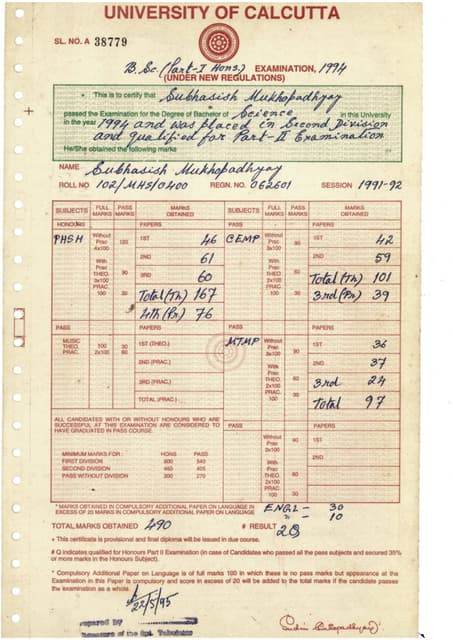 UNIVERSITY OF CALCUTTA
SL. NO. A 38779
B.Sc. (Part-I Hons.) EXAMINATION, 1994
(UNDER NEW REGULATIONS)
This is to certify that Subhasish Mukhopadhyay
passed the Examination for the Degree of Bachelor of Science in this University
in the year 1994 and was placed in Second Division
and qualified for Part-II Examination
He/She obtained the following marks
NAME Subhasish Mukhopadhyay
ROLL NO 102/MHS/0400 REGN. NO. 062601 SESSION 1991-92
SUBJECTS FULL MARKS PASS MARKS MARKS OBTAINED SUBJECTS FULL MARKS PASS MARKS MARKS OBTAINED
HONOURS PAPERS PASS PAPERS
PHSH Without Prac 4x100 1ST 46 CEMP Without Prac 3x100 90 1ST 42
2ND 61 2ND 59
With Prac THEO. 3x100 90 3RD 60 With Prac THEO. 2x100 60 Total (Th) 101
PRAC. 100 30 Total (Th) 167 PRAC. 100 30 3rd (Pr) 39
4th (Pr) 76
PASS PAPERS PASS PAPERS
MUSIC THEO. 100 30 1ST (THEO.) MTMP Without Prac 3x100 90 1ST 36
PRAC. 2x100 60 2ND (PRAC.) 2ND 37
3RD (PRAC.) With Prac THEO. 2x100 60 3rd 24
TOTAL (PRAC.) PRAC. 100 30 Total 97
ALL CANDIDATES WITH OR WITHOUT HONOURS WHO ARE
SUCCESSFUL AT THIS EXAMINATION ARE CONSIDERED TO
HAVE GRADUATED IN PASS COURSE.
PASS Without Prac 3x100 90 PAPERS 1ST
2ND
With Prac THEO. 2x100 60
PRAC. 100 30
MINIMUM MARKS FOR : HONS PASS
FIRST DIVISION 600 540
SECOND DIVISION 405
PASS WITHOUT DIVISION 270
* MARKS OBTAINED IN COMPULSORY ADDITIONAL PAPER ON LANGUAGE IN ENGL - 30
EXCESS OF 20 MARKS IN COMPULSORY ADDITIONAL PAPER ON LANGUAGE " - 10
TOTAL MARKS OBTAINED 490 # RESULT 2Q
+ This certificate is provisional and final diploma will be issued in due course.
# Q indicates qualified for Honours Part II Examination (in case of Candidates who passed all the pass subjects and secured 35%
or more marks in the Honours Subject).
* Compulsory Additional Paper on Language is of full marks 100 in which there is no pass marks but appearance at the
Examination in this Paper is compulsory and score in excess of 20 will be added to the total marks if the candidate passes
the examination as a whole.
22/5/95
Prepared by